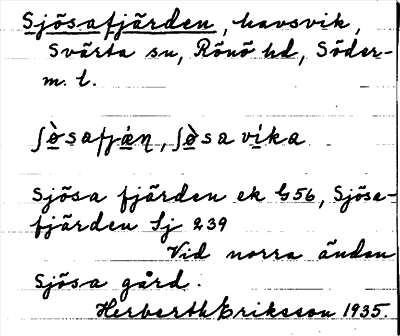 Sjösafjärden, havsvik,
Svärta sn, Rönö hd, Söder-
m. l.
ʃø̀safjæ̣ṇ, ʃø̀sa víka
Sjösa fjärden ek G56, Sjösa-
fjärden Sj 239
Vid norra änden
Sjösa gård.
Herberth Eriksson 1935.